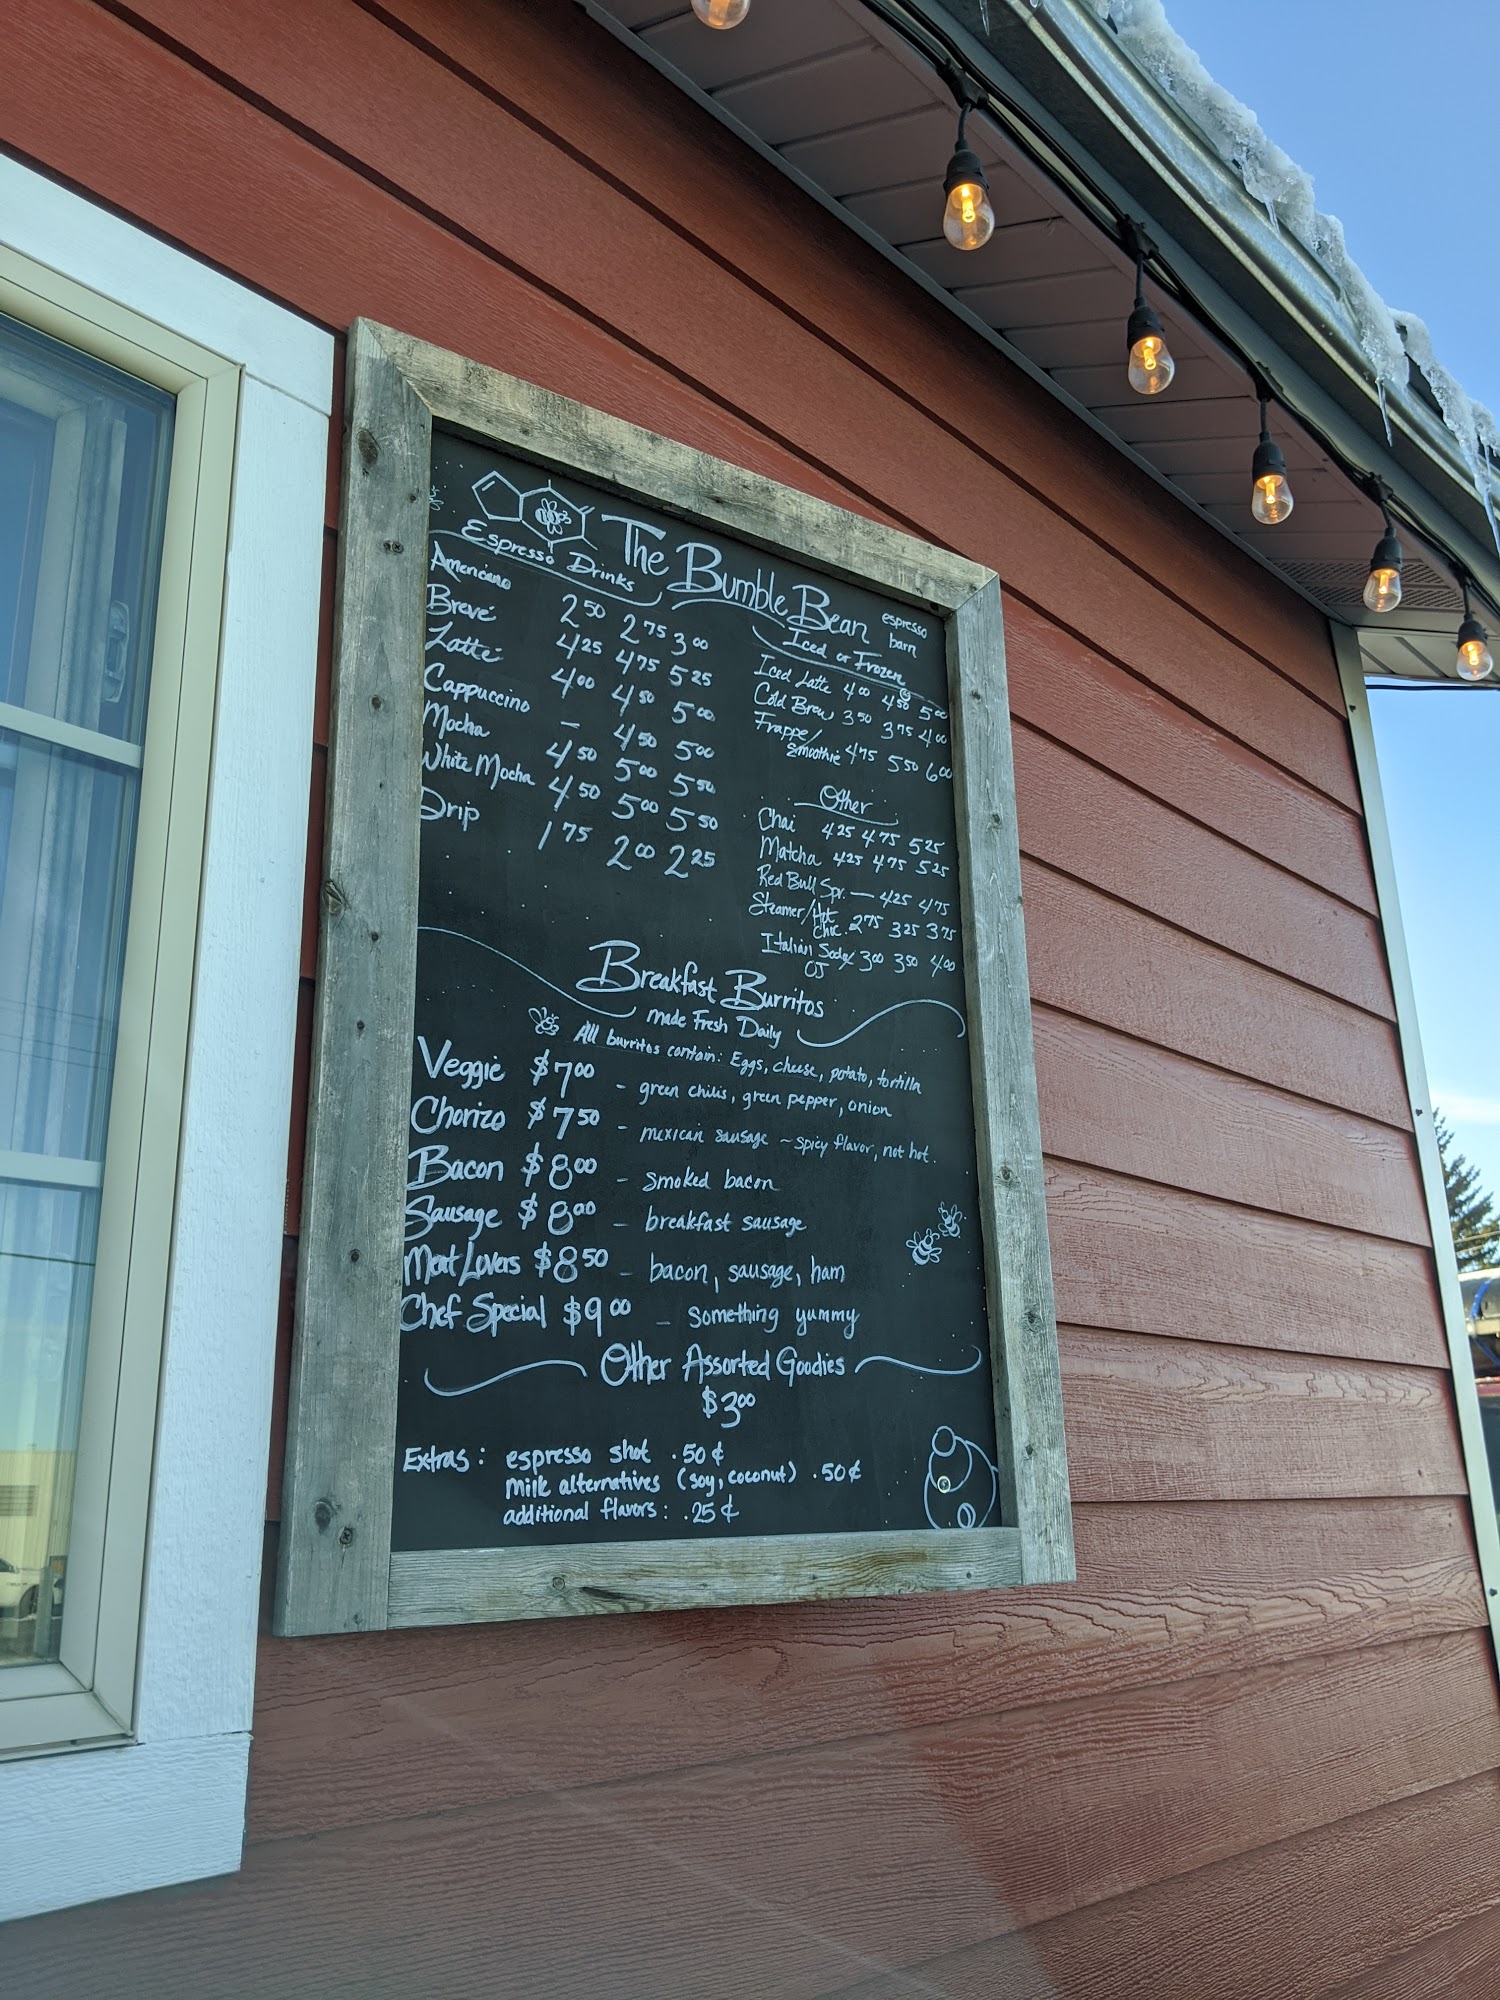 The Bumble Bean espresso barn
Espresso Drinks
Americano 2.50 2.75 3.00
Breve 4.25 4.75 5.25
Latte 4.00 4.50 5.00
Cappuccino — 4.50 5.00
Mocha 4.50 5.00 5.50
White Mocha 4.50 5.00 5.50
Drip 1.75 2.00 2.25
Iced or Frozen
Iced Latte 4.00 4.50 5.00
Cold Brew 3.50 3.75 4.00
Frappe/
Smoothie 4.75 5.50 6.00
Other
Chai 4.25 4.75 5.25
Matcha 4.25 4.75 5.25
Red Bull Spr. — 4.25 4.75
Steamer/Hot
Choc. 2.75 3.25 3.75
Italian Soda/ 3.00 3.50 4.00
OJ
Breakfast Burritos
made Fresh Daily
All burritos contain: Eggs, cheese, potato, tortilla
Veggie $7.00 - green chilis, green pepper, onion
Chorizo $7.50 - mexican sausage ~ spicy flavor, not hot.
Bacon $8.00 - smoked bacon
Sausage $8.00 - breakfast sausage
Meat Lovers $8.50 - bacon, sausage, ham
Chef Special $9.00 - something yummy
Other Assorted Goodies
$3.00
Extras: espresso shot .50¢
milk alternatives (soy, coconut) .50¢
additional flavors: .25¢